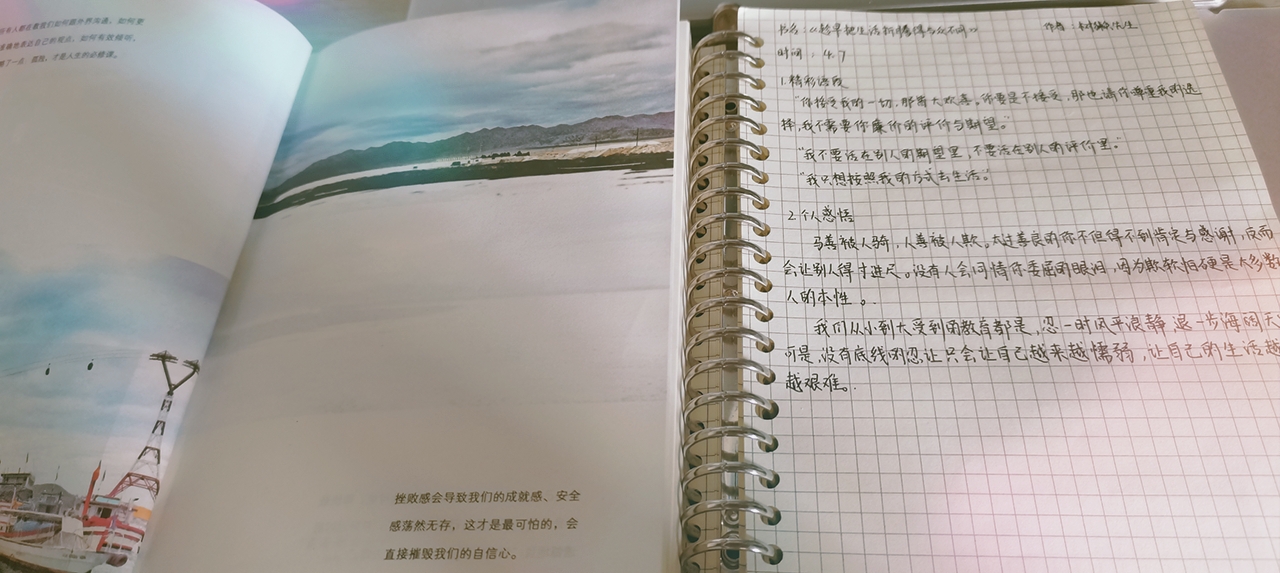 有人都在教我们如何跟外界沟通，如何更
准确地表达自己的观点，如何有效倾听，
了一点 孤独，才是人生的必修课。
挫败感会导致我们的成就感、安全
感荡然无存，这才是最可怕的，会
直接摧毁我们的自信心。
书名：《趁早把生活折腾得与众不同》 作者：林 先生
时间：4.7
1.精彩语段
“你接受我的一切，那皆大欢喜。你要是不接受，那也请你尊重我的选
择，我不需要你廉价的评价与期望。”
“我不要活在别人的期望里，不要活在别人的评价里。”
“我只想按照我的方式去生活。”
2.个人感悟
马善被人骑，人善被人欺。太过善良的你不但得不到肯定与感谢，反而
会让别人得寸进尺。没有人会同情你委屈的眼泪，因为欺软怕硬是大多数
人的本性。
我们从小到大受到的教育都是，忍一时风平浪静，退一步海阔天
可是，没有底线的忍让只会让自己越来越懦弱，让自己的生活越
越艰难。